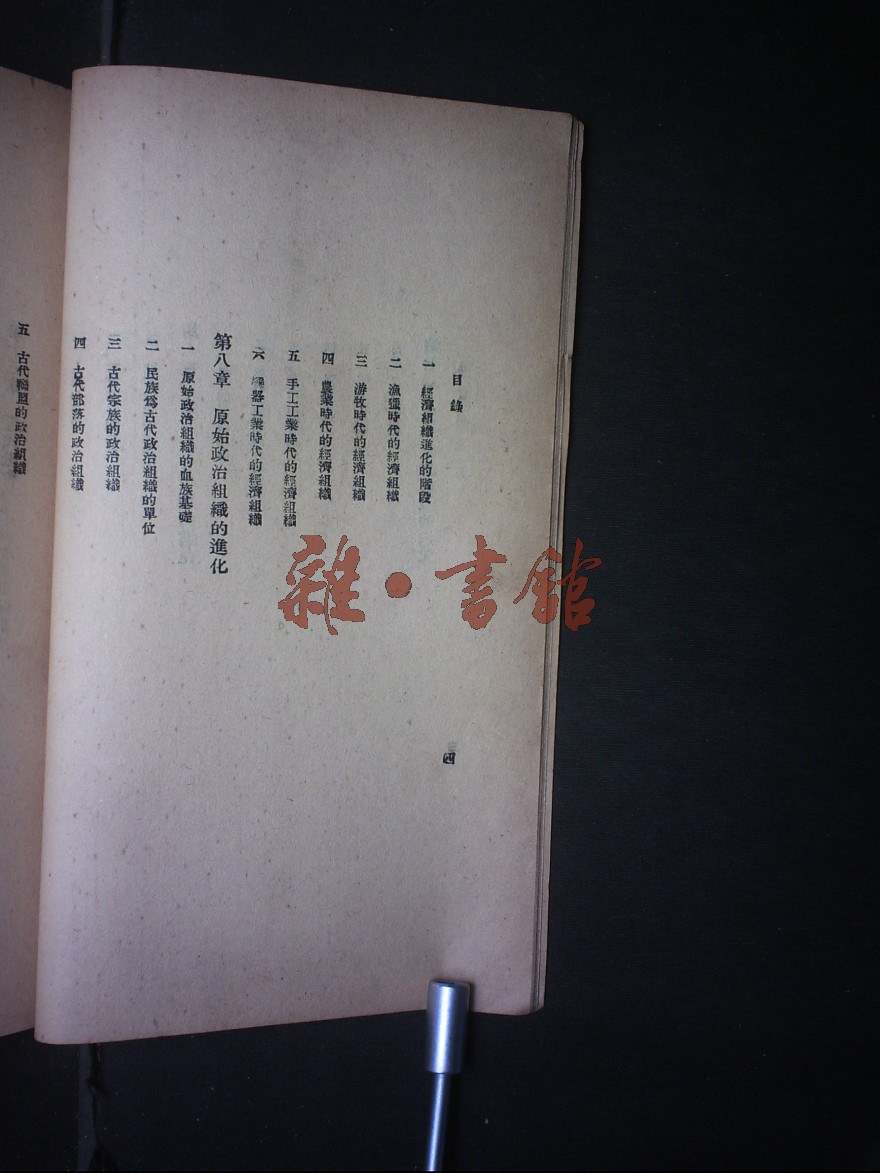 目錄
四
一　經濟組織進化的階段
二　漁獵時代的經濟組織
三　游牧時代的經濟組織
四　農業時代的經濟組織
五　手工工業時代的經濟組織
六　機器工業時代的經濟組織
第八章　原始政治組織的進化
一　原始政治組織的血族基礎
二　民族爲古代政治組織的單位
三　古代宗族的政治組織
四　古代部落的政治組織
五　古代聯盟的政治組織
雜・書館